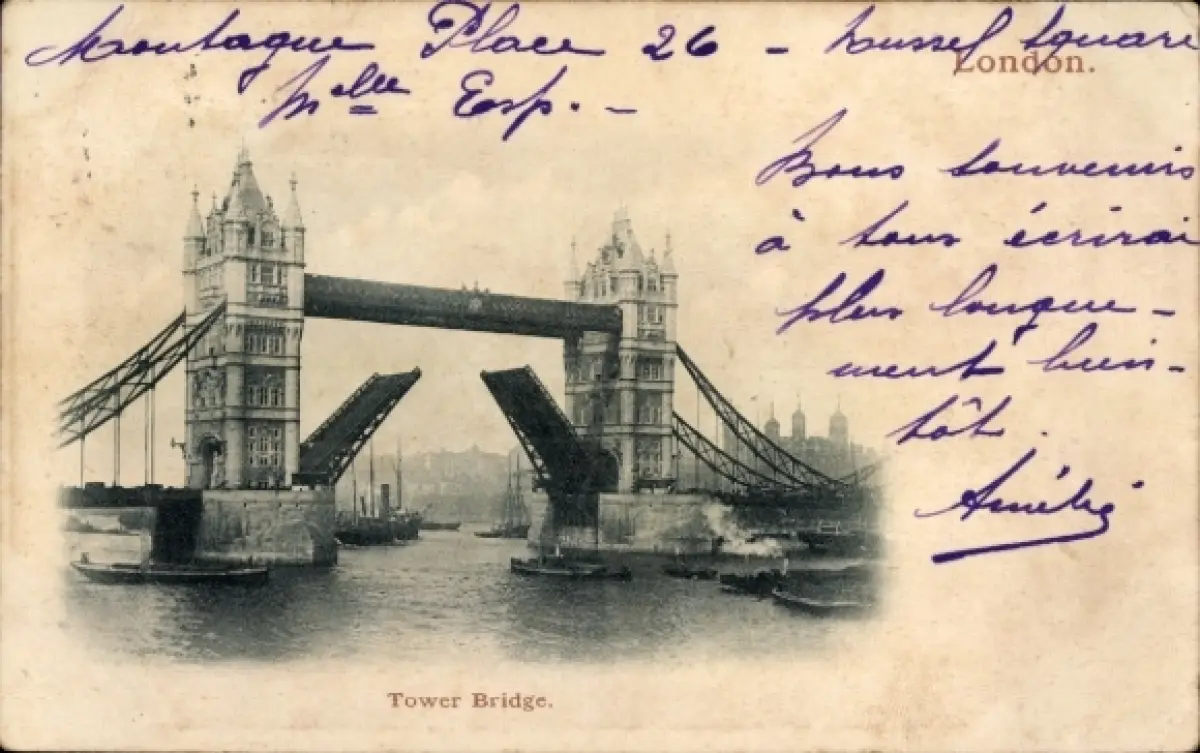 Montague Place 26 - Russel Square
London.
Mlle Esp. -
Bons souvenirs
à tous écrirai
plus longue-
ment bien-
tôt.
Amélie
Tower Bridge.